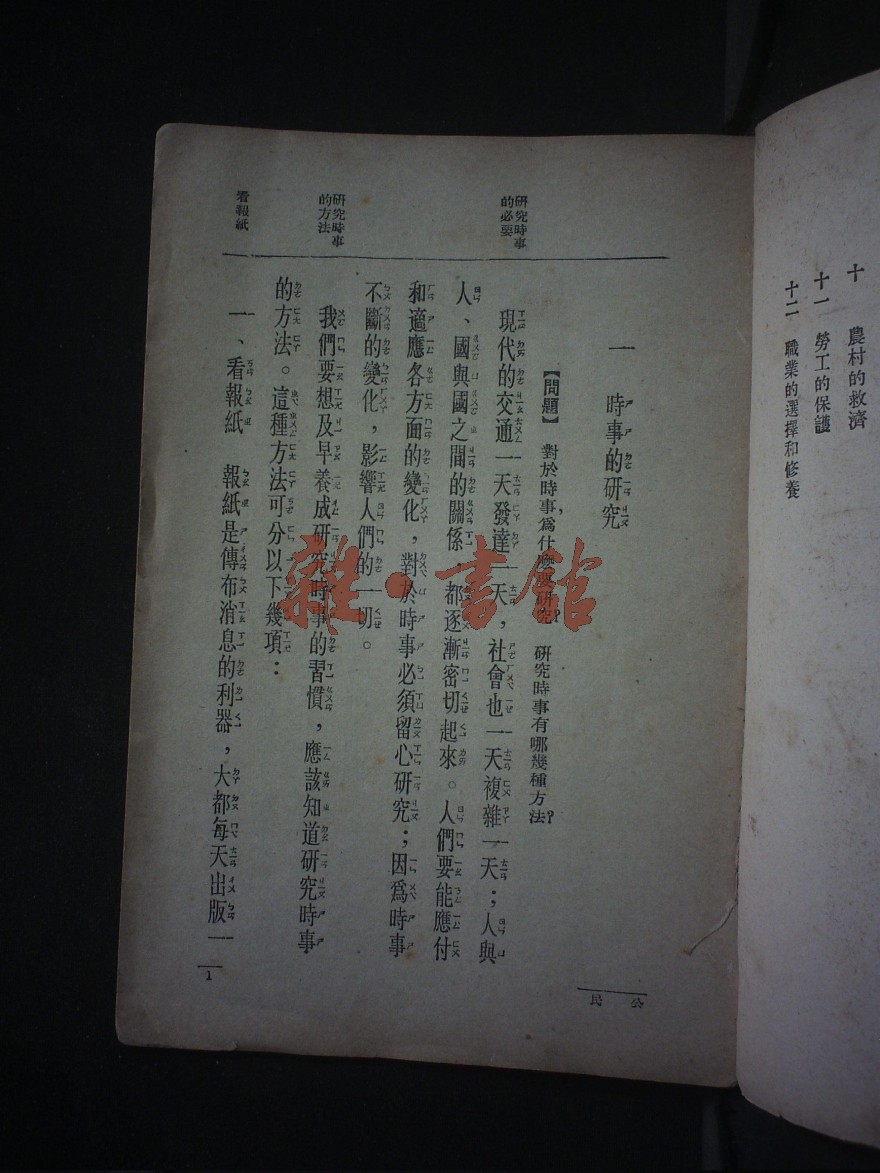 十 農村的救濟
十一 勞工的保護
十二 職業的選擇和修養
公民
一 時事的研究
【問題】 對於時事，爲什麼要研究？ 研究時事有哪幾種方法？
研究時事的必要
現代的交通一天發達一天，社會也一天複雜一天；人與
人、國與國之間的關係，都逐漸密切起來。人們要能應付
和適應各方面的變化，對於時事必須留心研究；因爲時事
不斷的變化，影響人們的一切。
研究時事的方法
我們要想及早養成研究時事的習慣，應該知道研究時事
的方法。這種方法可分以下幾項：
看報紙
一、看報紙 報紙是傳布消息的利器，大都每天出版一
1
雜·書館